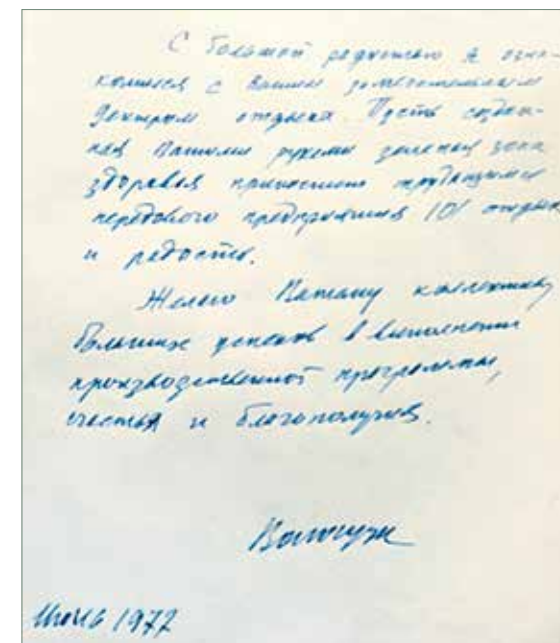 С большой радостью я озна-
комился с Вашим замечательным
Центром отдыха. Пусть создан-
ная Вашими руками зеленая зона
здоровья приносит трудящимся
передового предприятия 101 отдых
и радость.
Желаю Вашему коллективу
больших успехов в выполнении
производственной программы,
счастья и благополучия.
1972